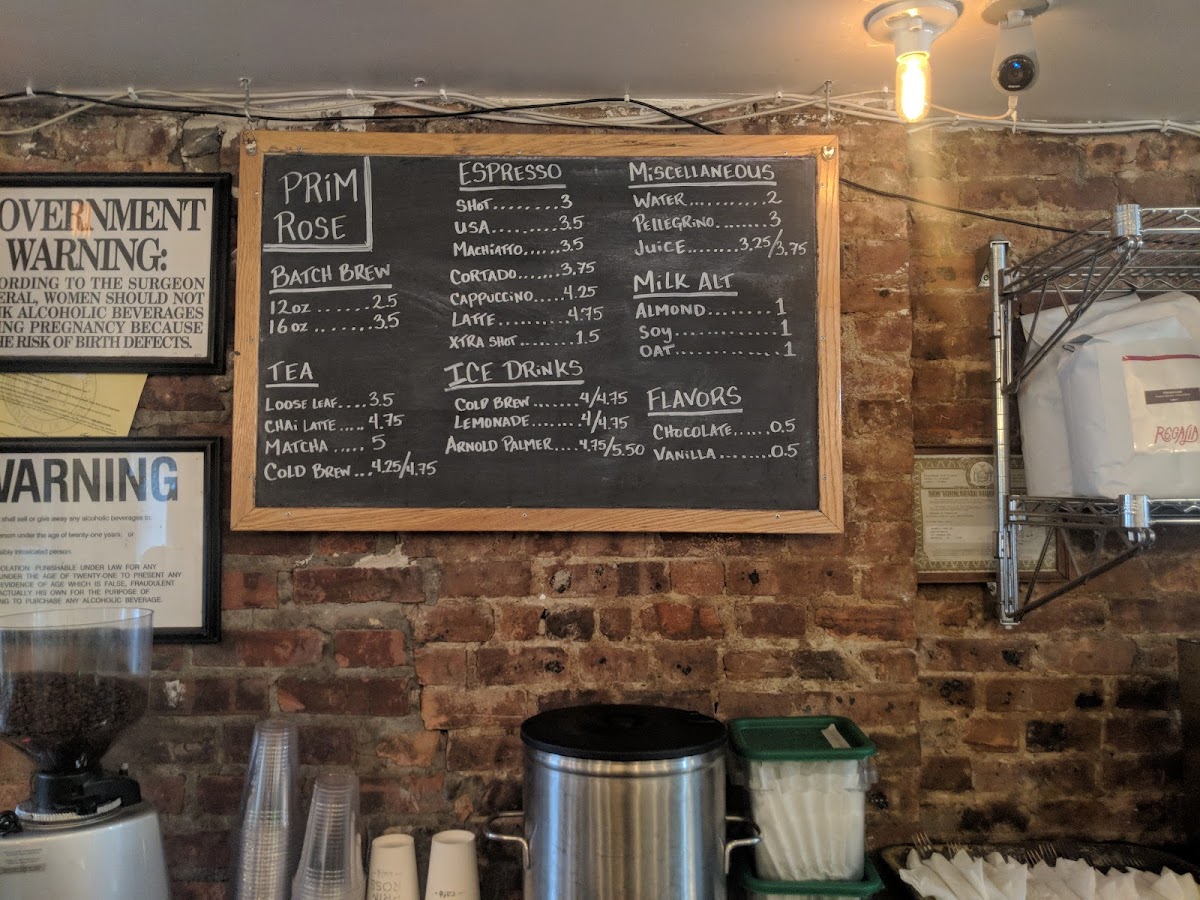 PRiM
ROSE
BATCH BREW
12oz......2.5
16oz.......3.5
TEA
LOOSE LEAF....3.5
CHAi LATTE.....4.75
MATCHA.....5
COLD BREW...4.25/4.75
ESPRESSO
SHOT.........3
USA..........3.5
MACHiATTO.....3.5
CORTADO.......3.75
CAPPUCCiNO.....4.25
LATTE..........4.75
XTRA SHOT........1.5
ICE DRiNKS
COLD BREW.......4/4.75
LEMONADE.......4/4.75
ARNOLD PALMER....4.75/5.50
MiSCELLANEOUS
WATER...........2
PELLEGRiNO.......3
JUiCE.......3.25/3.75
MiLK ALT
ALMOND........1
SOY...............1
OAT.............1
FLAVORS
CHOCOLATE......0.5
VANiLLA........0.5
OVERNMENT
WARNING:
ORDING TO THE SURGEON
ERAL, WOMEN SHOULD NOT
NK ALCOHOLIC BEVERAGES
ING PREGNANCY BECAUSE
HE RISK OF BIRTH DEFECTS.
WARNING
shall sell or give away any alcoholic beverages to:
person under the age of twenty-one years, or
sibly intoxicated person.
OLATION PUNISHABLE UNDER LAW FOR ANY
UNDER THE AGE OF TWENTY-ONE TO PRESENT ANY
EVIDENCE OF AGE WHICH IS FALSE, FRAUDULENT
ACTUALLY HIS OWN FOR THE PURPOSE OF
NG TO PURCHASE ANY ALCOHOLIC BEVERAGE.
REGALIA